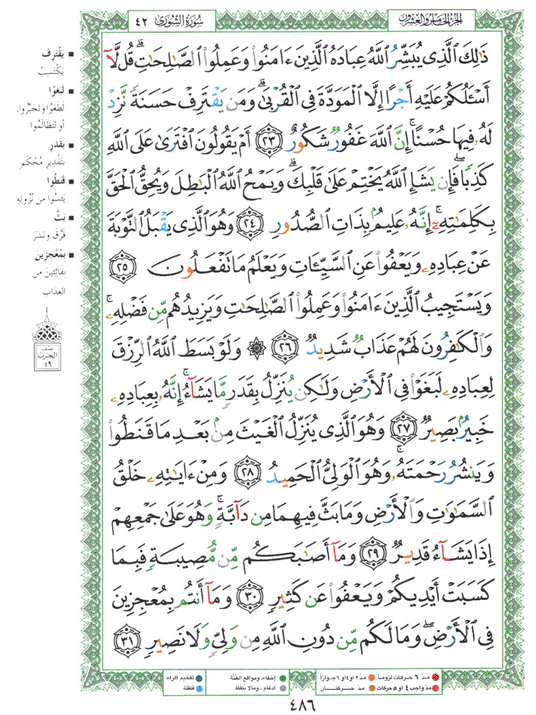 الجزء الخامس والعشرون
سورة الشورى
٤٢
ذَٰلِكَ ٱلَّذِى يُبَشِّرُ ٱللَّهُ عِبَادَهُ ٱلَّذِينَ ءَامَنُوا۟ وَعَمِلُوا۟ ٱلصَّـٰلِحَـٰتِ ۗ قُل لَّآ
أَسْـَٔلُكُمْ عَلَيْهِ أَجْرًا إِلَّا ٱلْمَوَدَّةَ فِى ٱلْقُرْبَىٰ ۗ وَمَن يَقْتَرِفْ حَسَنَةً نَّزِدْ
لَهُۥ فِيهَا حُسْنًا ۚ إِنَّ ٱللَّهَ غَفُورٌ شَكُورٌ ٢٣ أَمْ يَقُولُونَ ٱفْتَرَىٰ عَلَى ٱللَّهِ
كَذِبًا ۖ فَإِن يَشَإِ ٱللَّهُ يَخْتِمْ عَلَىٰ قَلْبِكَ ۗ وَيَمْحُ ٱللَّهُ ٱلْبَـٰطِلَ وَيُحِقُّ ٱلْحَقَّ
بِكَلِمَـٰتِهِۦٓ ۚ إِنَّهُۥ عَلِيمٌۢ بِذَاتِ ٱلصُّدُورِ ٢٤ وَهُوَ ٱلَّذِى يَقْبَلُ ٱلتَّوْبَةَ
عَنْ عِبَادِهِۦ وَيَعْفُوا۟ عَنِ ٱلسَّيِّـَٔاتِ وَيَعْلَمُ مَا تَفْعَلُونَ ٢٥
وَيَسْتَجِيبُ ٱلَّذِينَ ءَامَنُوا۟ وَعَمِلُوا۟ ٱلصَّـٰلِحَـٰتِ وَيَزِيدُهُم مِّن فَضْلِهِۦ ۚ
وَٱلْكَـٰفِرُونَ لَهُمْ عَذَابٌ شَدِيدٌ ٢٦ ۞ وَلَوْ بَسَطَ ٱللَّهُ ٱلرِّزْقَ
لِعِبَادِهِۦ لَبَغَوْا۟ فِى ٱلْأَرْضِ وَلَـٰكِن يُنَزِّلُ بِقَدَرٍ مَّا يَشَآءُ ۚ إِنَّهُۥ بِعِبَادِهِۦ
خَبِيرٌۢ بَصِيرٌ ٢٧ وَهُوَ ٱلَّذِى يُنَزِّلُ ٱلْغَيْثَ مِنۢ بَعْدِ مَا قَنَطُوا۟
وَيَنشُرُ رَحْمَتَهُۥ ۚ وَهُوَ ٱلْوَلِىُّ ٱلْحَمِيدُ ٢٨ وَمِنْ ءَايَـٰتِهِۦ خَلْقُ
ٱلسَّمَـٰوَٰتِ وَٱلْأَرْضِ وَمَا بَثَّ فِيهِمَا مِن دَآبَّةٍ ۚ وَهُوَ عَلَىٰ جَمْعِهِمْ
إِذَا يَشَآءُ قَدِيرٌ ٢٩ وَمَآ أَصَـٰبَكُم مِّن مُّصِيبَةٍ فَبِمَا
كَسَبَتْ أَيْدِيكُمْ وَيَعْفُوا۟ عَن كَثِيرٍ ٣٠ وَمَآ أَنتُم بِمُعْجِزِينَ
فِى ٱلْأَرْضِ ۖ وَمَا لَكُم مِّن دُونِ ٱللَّهِ مِن وَلِىٍّ وَلَا نَصِيرٍ ٣١
يَقْتَرِف
يَكْتَسِبْ
لَبَغَوْا
لَطَغَوْا وَتَجَبَّروا،
أو لتظالموا
بقَدَر
بتقدير مُحْكَم
قَنَطُوا
يَئِسُوا من نُزولِهِ
بَثَّ
فَرَّقَ ونَشَرَ
بمُعْجِزِين
بفائتينَ من
العذاب
نصف
الحزب
٤٩
مدّ ٦ حركات لزوماً
مدّ ٢ أو ٤ أو ٦ جوازاً
إخفاء، ومواقع الغُنَّة
تفخيم الراء
مدّ واجب ٤ أو ٥ حركات
مدّ حركتان
ادغام، وما لا يُلفَظ
قلقلة
٤٨٦